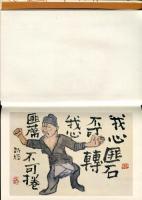 我心匪石
不可轉
我心
匪席
不可捲